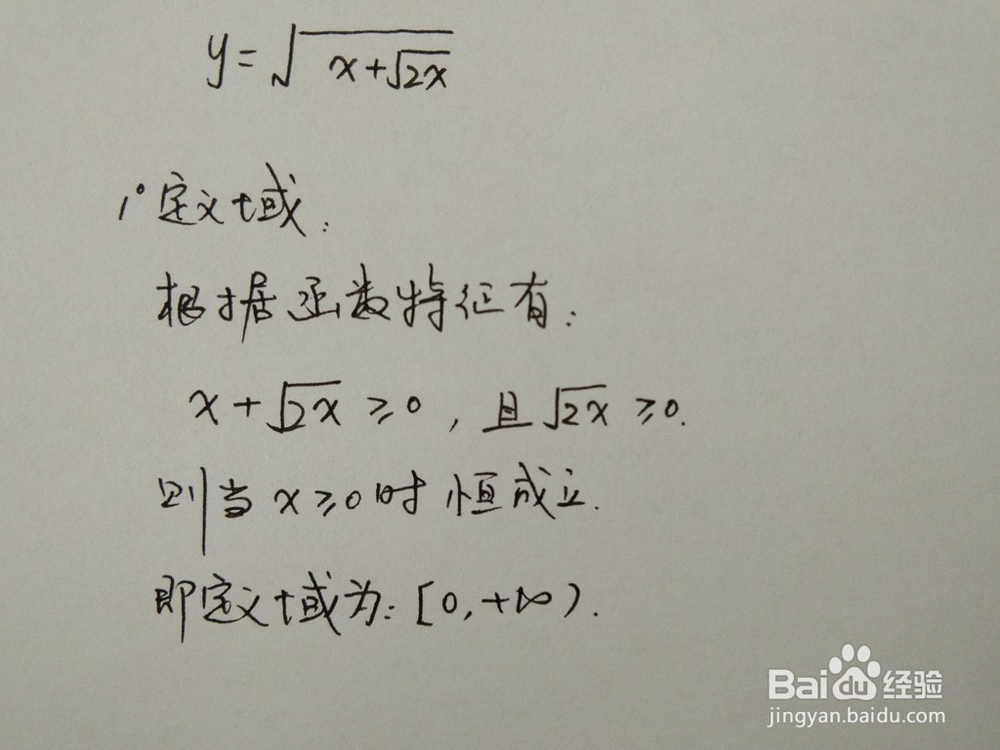 y=√(x+√(2x))
1° 定义域:
根据函数特征有:
x+√(2x) ≥0, 且√(2x) ≥0.
则当 x≥0时 恒成立.
即定义域为: [0,+∞).
Baidu 经验
jingyan.baidu.com